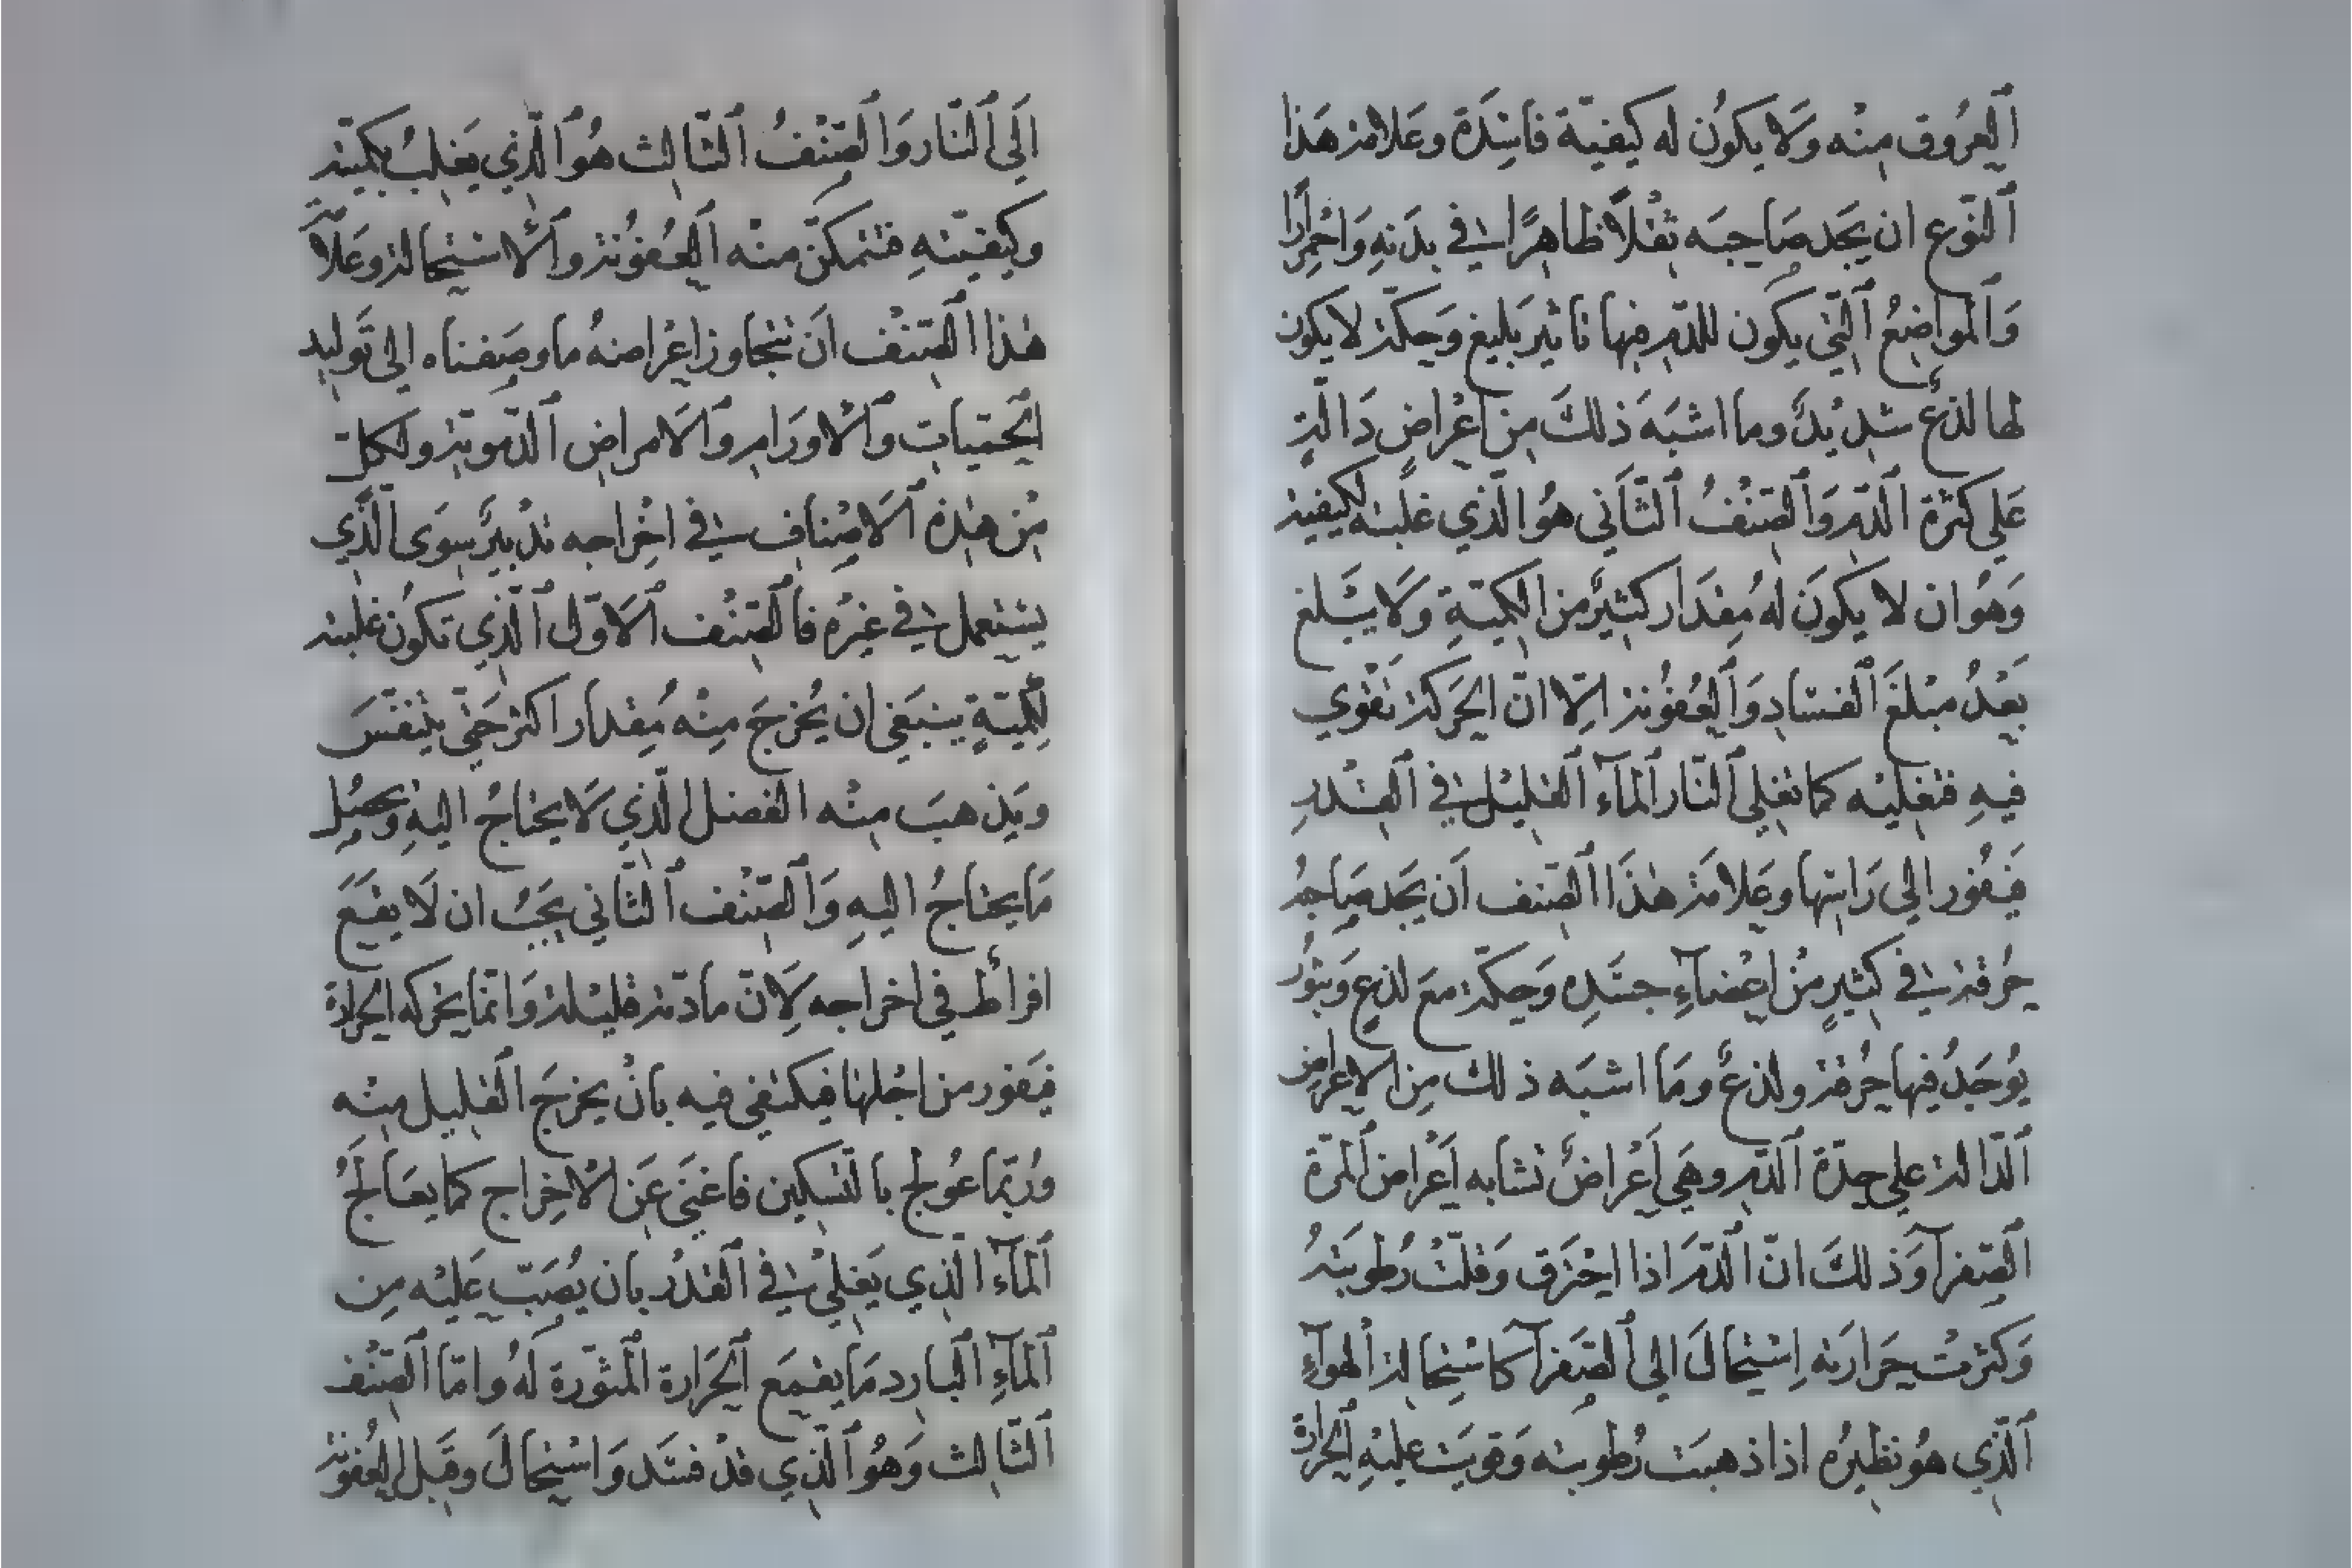 العُرُوق مِنْه وَلا يكوُن له كيفيّة فاسِدَة وعَلامة هَذا
النّوع ان يَجَد صَاحِبَه ثقْلاً ظاهِرًا في بدَنهِ وَاحْمِرارًا
وَالمواضعُ الّتي يكُون للدّم فيها تاثير بليغ وَحِكّة لا يكون
لها لذعٌ شديدٌ وما اشبَهَ ذلكَ مِن اَعْراضٍ دَالّةٍ
عَلى كثرة الدّم وَالصّنْفُ الثّاَني هوُ الّذي غلبته لكيفيته
وَهوُ ان لا يكوَن لهُ مِقدَار كثيرٌ من الكميّةِ وَلا يَبْلغ
بَعْدُ مبْلغَ الفسَادِ وَالعُفوُنة اِلّا انّ الحَركة تقْوي
فيهِ فتغليْه كما تغلي النّار المآء القليْل في القِدْرِ
فيَفُور الى رَاسِها وعَلامَة هٰذَا الصّنف اَن يَجَد صَاحِبُه
حُرقة في كثيرٍ مِنْ اعْضآءِ جسَدِه وَحِكّة معَ لذعٍ وَبثوُر
يوُجَدُ فيها حُرقة ولذعٌ ومَا اشبَه ذلك مِن الاعراض
الدّالة على حِدّة الدّم وهَي اَعْراضٌ تشابه اَعْراض المرّة
الصّفرآ وَذلكَ انّ الدّمَ اذا احْترَق وَقلّتْ رُطوبَتهُ
وَكثرتْ حَرارَته اِسْتحالَ الى الصّفَرآ كاسْتِحالة الهوآءِ
الّذي هوُ نظيرُه اذا ذهبَت رُطوبته وَقويَت عليْهِ الحرارة
اِلَى النّار وَالصّنْفُ الثّالث هوُ الّذي يَغلبُ بكميّته
وكيفيّتهِ فتتمكنّ منْه العُفوُنة وَالاْستحالة وعَلامَة
هٰذا الصّنْف اَن تتجاوز اَعْراضهُ ما وصَفناه الى تَوليد
الحمّيات وَالاْورَام وَالاَمراض الدّمويّة ولكلّ
مِنْ هٰذِه الاَصْناف في اخْراجه تدْبيرٌ سِوَى الّذي
يسْتعمل في غيْره فالصّنْف الاَوّل الّذي تكوُن غلبته
لِكميّةٍ ينبَغي ان يُخرجَ مِنْه مِقدار اكثر حَتّى يتنفّسَ
ويَذهبَ مِنْه الفضل الّذي لَا يحتاجُ اليهِ وَيحصُل
مَا يحتاجُ اليهِ وَالصّنْف الثّاني يَجَبُ ان لَا يقَعَ
افراطٌ في اخراجه لِاَنّ مادّته قليْلة وَانّما يحركه الحرارة
فيَفور من اجْلها فيكتفي فيه بانْ يخرجَ القليل مِنْه
ورُبّما عوُلج بالتّسكين فاغنَى عَن الاْخِراج كما يعَالَجُ
المآء الّذي يَغليْ في القدْر بان يُصَبّ عَليْه مِن
المآءِ البارد مَا يقمَع الحَرَارة المثوّرة لَهُ وامّا الصّنْف
الثّالث وَهوُ الّذي قدْ فسَد وَاسْتحالَ وقبل العُفونة